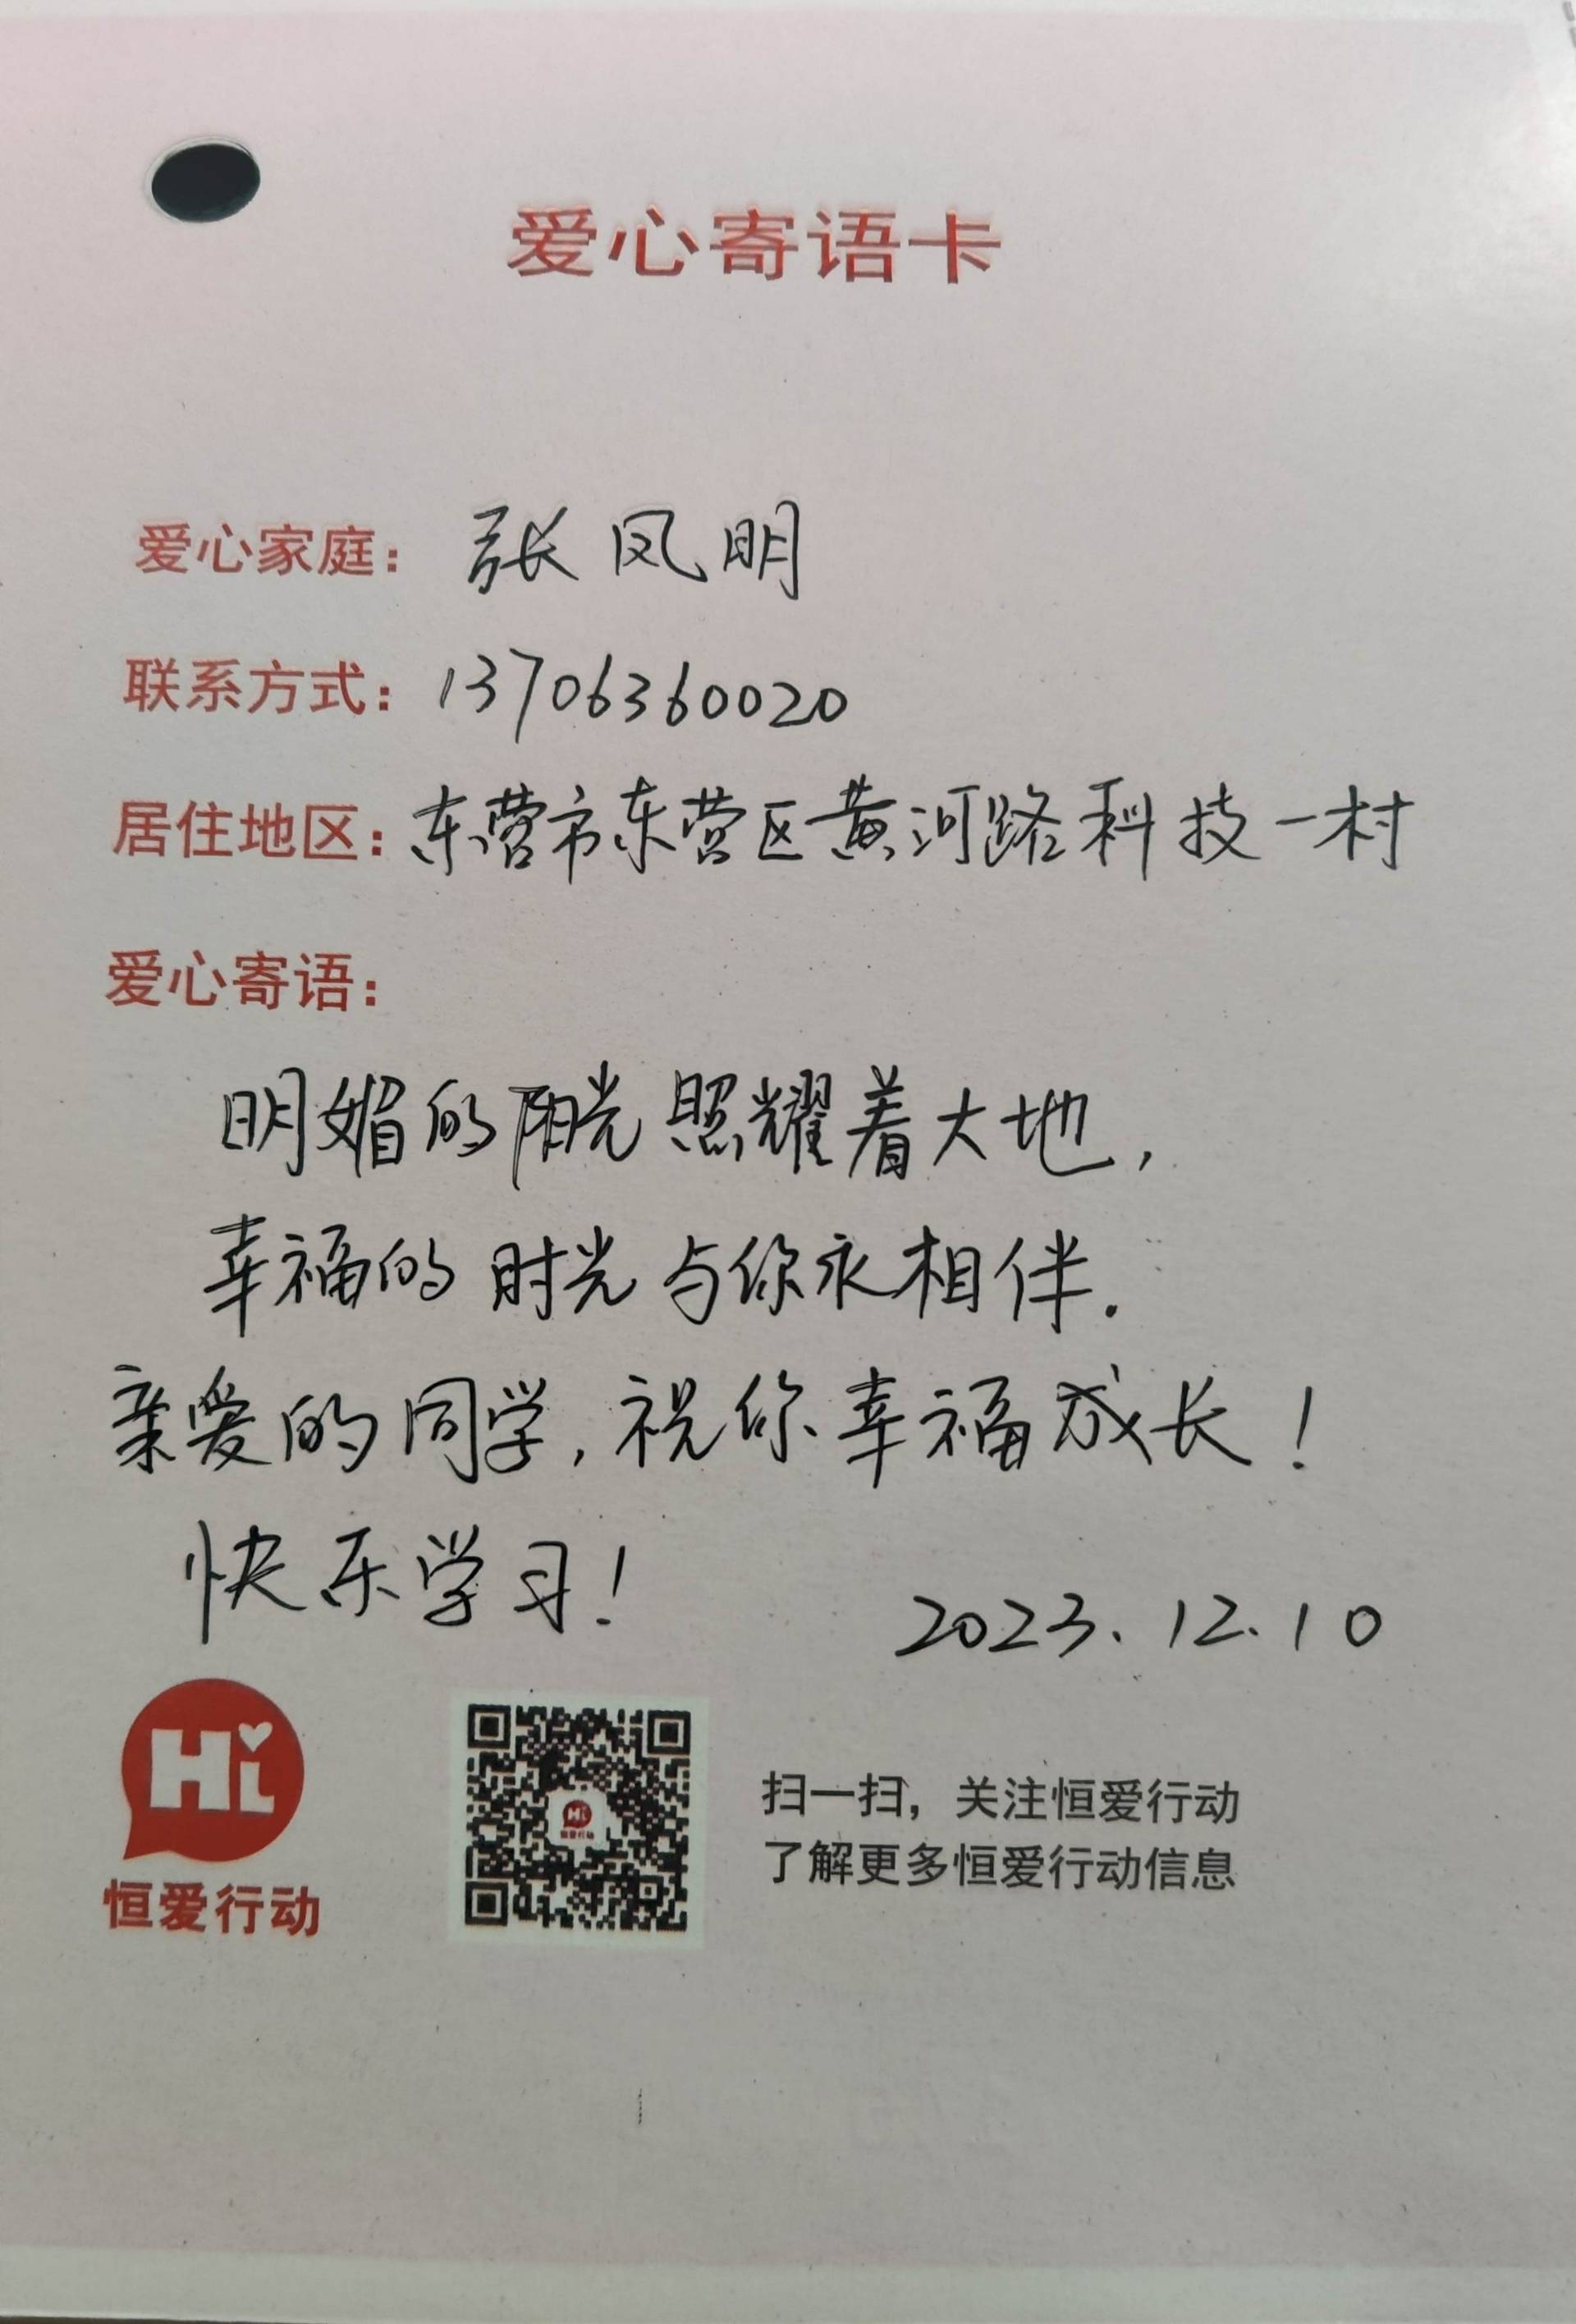 爱心寄语卡
爱心家庭：张凤明
联系方式：13706360020
居住地区：东营市东营区黄河路科技一村
爱心寄语：
明媚的阳光照耀着大地，
幸福的时光与你永相伴.
亲爱的同学，祝你幸福成长！
快乐学习！
2023.12.10
Hi
恒爱行动
扫一扫，关注恒爱行动
了解更多恒爱行动信息